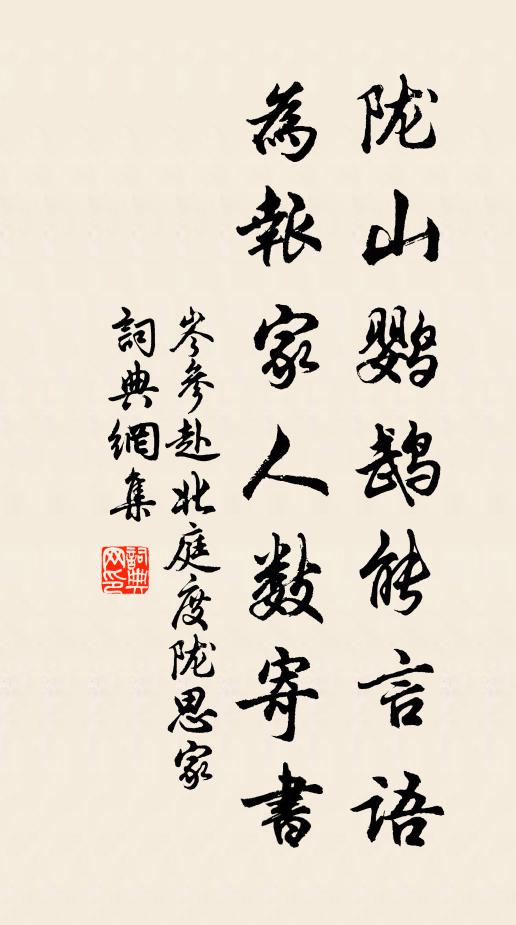 陇山鹦鹉能言语
為報家人数寄書
岑參赴北庭度陇思家
詞典網集
詞典网印